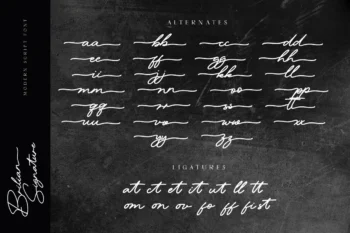 ALTERNATES
aa bb cc dd
ee ff gg hh
ii jj kk ll
mm nn oo pp
qq rr ss tt
uu vv ww xx
yy zz
LIGATURES
at ct et it ut ll tt
om on ov fo ff fi st
MODERN SCRIPT FONT
Bilian
Signature